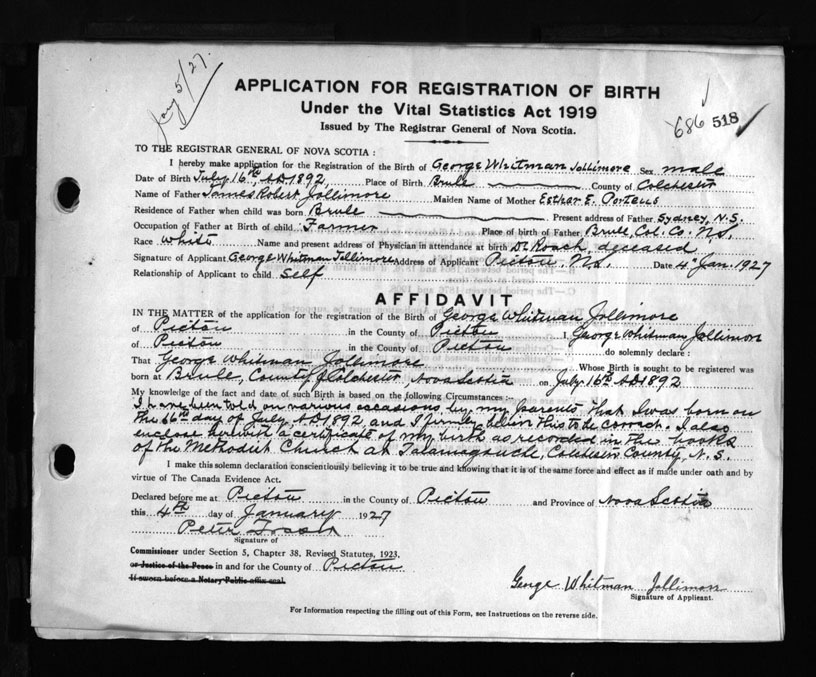 Jany 5/27.
APPLICATION FOR REGISTRATION OF BIRTH
Under the Vital Statistics Act 1919
Issued by The Registrar General of Nova Scotia.
686 518
TO THE REGISTRAR GENERAL OF NOVA SCOTIA :
I hereby make application for the Registration of the Birth of George Whitman Jollimore Sex male
Date of Birth July 16th AD 1892, Place of Birth Brule County of Colchester
Name of Father James Robert Jollimore Maiden Name of Mother Esthar E. Porteus
Residence of Father when child was born Brule Present address of Father Sydney, N.S.
Occupation of Father at Birth of child Farmer Place of birth of Father Brule, Col. Co. N.S.
Race White Name and present address of Physician in attendance at birth Dr Roach, deceased
Signature of Applicant George Whitman Jollimore Address of Applicant Pictou, N.S. Date 4th Jan. 1927
Relationship of Applicant to child Self
AFFIDAVIT
IN THE MATTER of the application for the registration of the Birth of George Whitman Jollimore
of Pictou in the County of Pictou I George Whitman Jollimore
of Pictou in the County of Pictou do solemnly declare :
That George Whitman Jollimore Whose Birth is sought to be registered was
born at Brule, County of Colchester, Nova Scotia on July 16th AD 1892
My knowledge of the fact and date of such Birth is based on the following Circumstances :-
I have been told on various occasions by my parents that I was born on
the 16th day of July, AD 1892, and I firmly believe this to be correct. I also
enclose herewith a certificate of my birth as recorded in the books
of the Methodist Church at Tatamagouche, Colchester County, N.S.
I make this solemn declaration conscientiously believing it to be true and knowing that it is of the same force and effect as if made under oath and by
virtue of The Canada Evidence Act.
Declared before me at Pictou in the County of Pictou and Province of Nova Scotia
this 4th day of January 1927
Peter
Signature of
Commissioner under Section 5, Chapter 38, Revised Statutes, 1923.
or Justice of the Peace in and for the County of Pictou
If sworn before a Notary Public affix seal.
George Whitman Jollimore
Signature of Applicant.
For Information respecting the filling out of this Form, see Instructions on the reverse side.